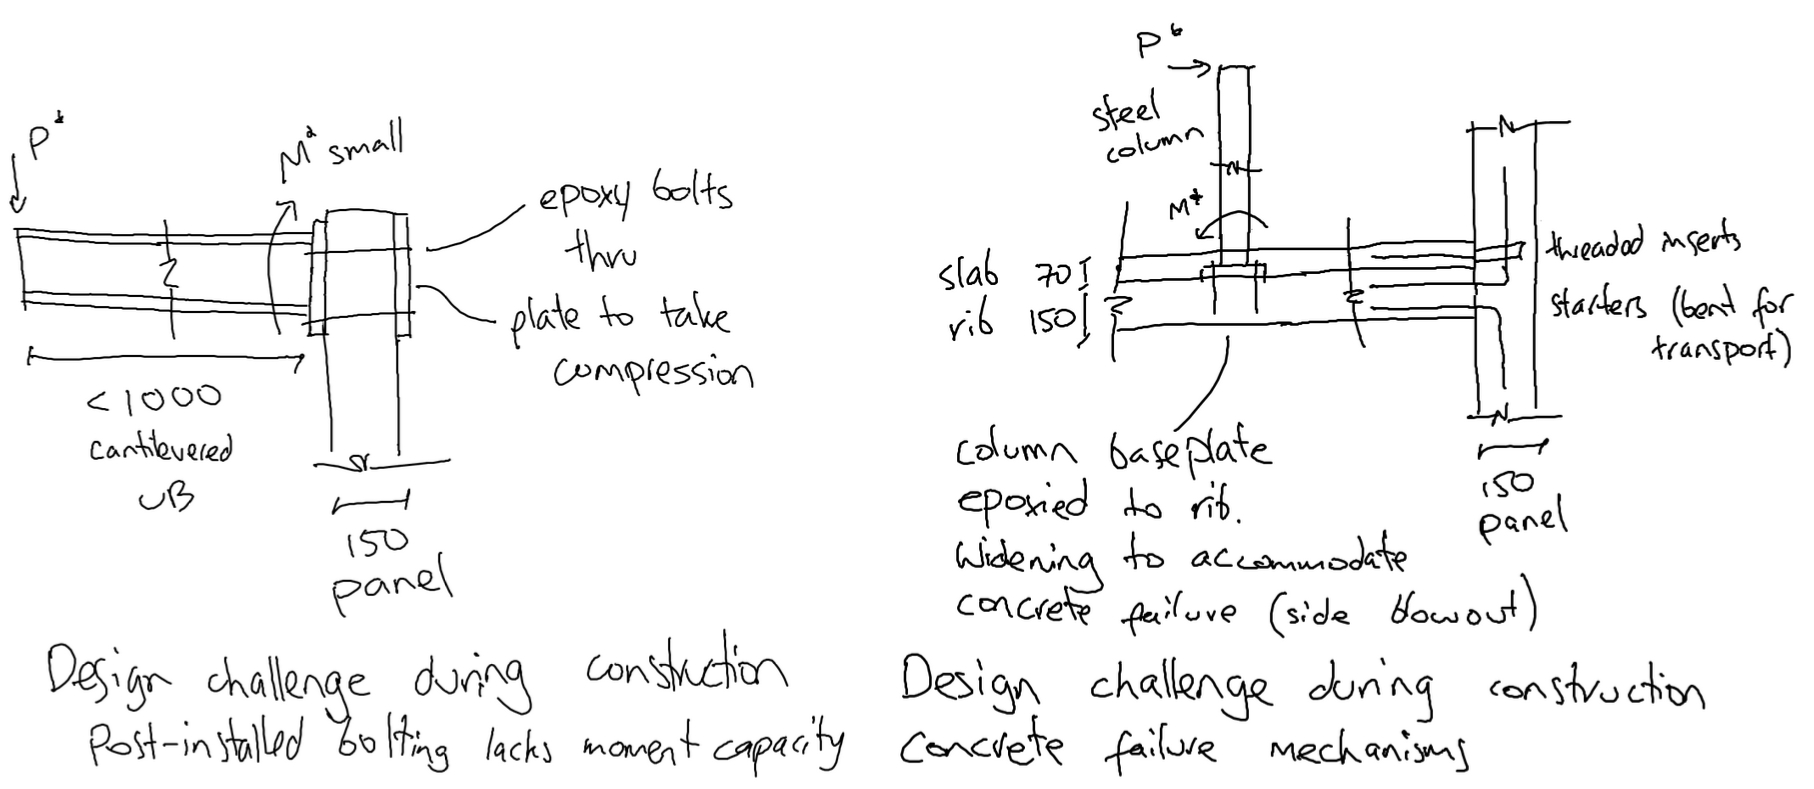 P*
M* small
epoxy bolts
thru
plate to take
compression
< 1000
cantilevered
UB
150
panel
Design challenge during construction
Post-installed bolting lacks moment capacity
P*
steel
column
M*
slab 70
rib 150
threaded inserts
starters (bent for
transport)
150
panel
column baseplate
epoxied to rib.
Widening to accommodate
concrete failure (side blowout)
Design challenge during construction
Concrete failure mechanisms